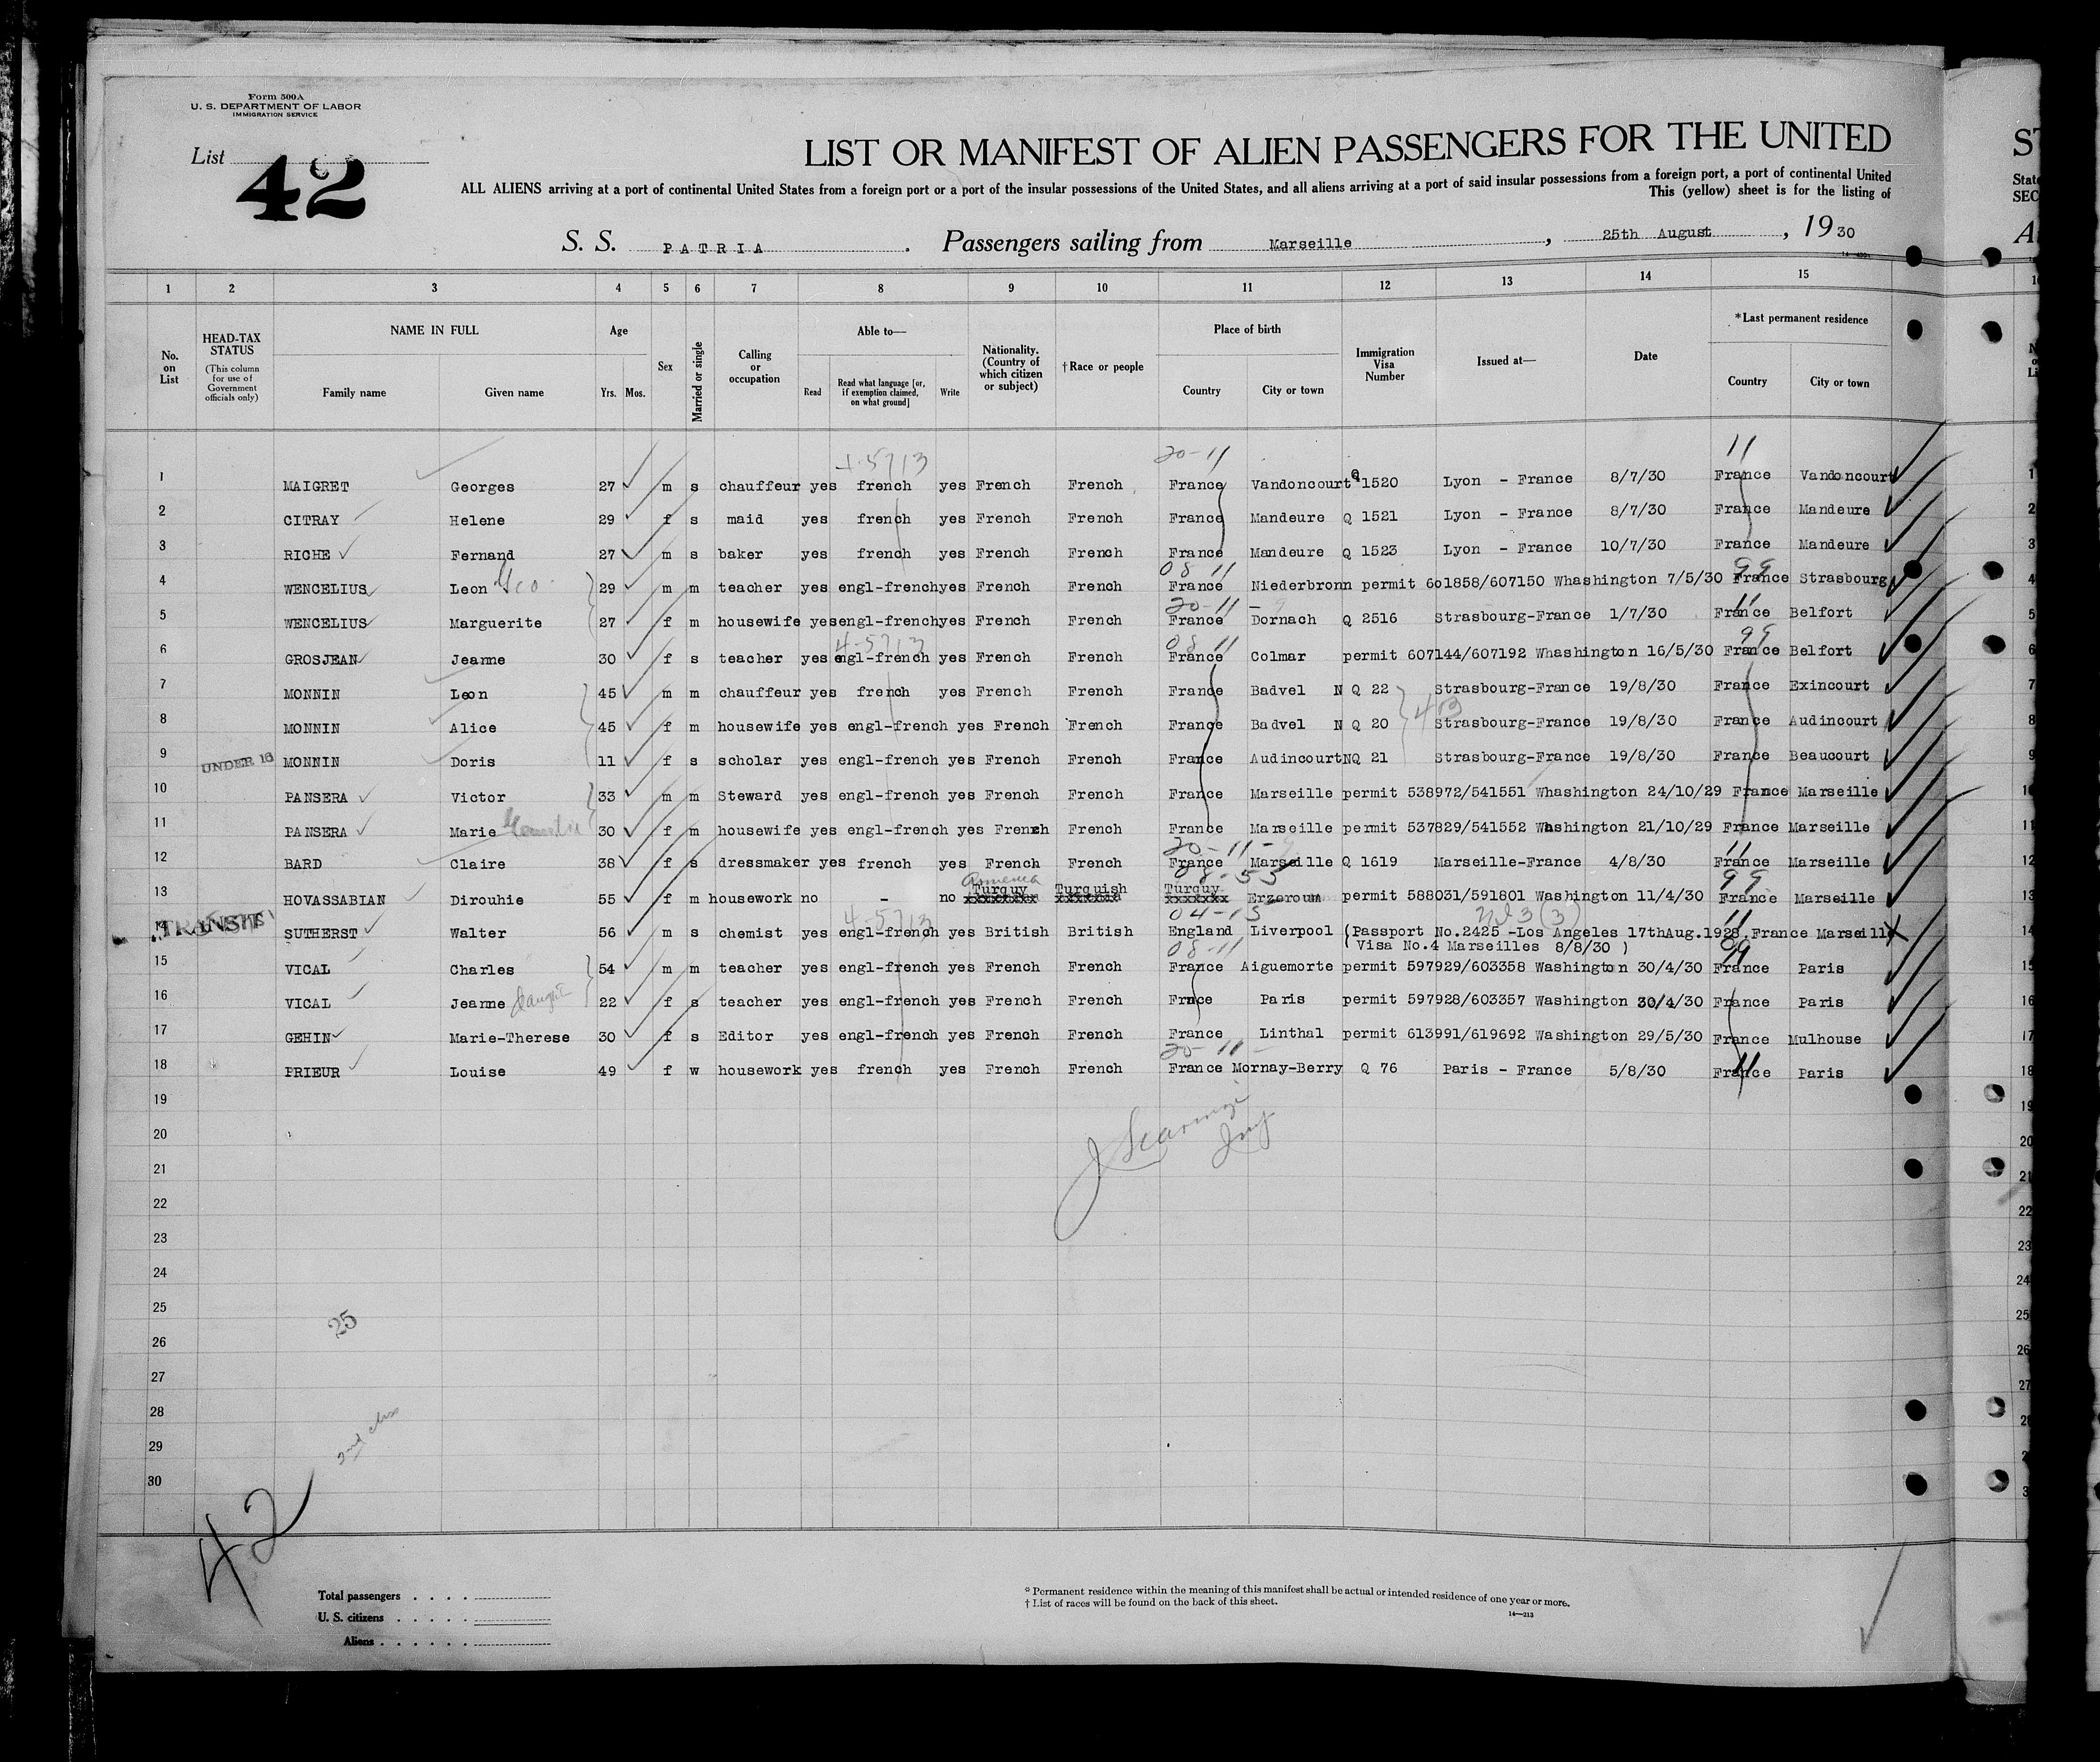 Form 500A
U. S. DEPARTMENT OF LABOR
IMMIGRATION SERVICE
List 42
LIST OR MANIFEST OF ALIEN PASSENGERS FOR THE UNITED
ALL ALIENS arriving at a port of continental United States from a foreign port or a port of the insular possessions of the United States, and all aliens arriving at a port of said insular possessions from a foreign port, a port of continental United
This (yellow) sheet is for the listing of
S. S. PATRIA . Passengers sailing from Marseille , 25th August , 1930
1 2 3 4 5 6 7 8 9 10 11 12 13 14 15
No. on List
HEAD-TAX STATUS (This column for use of Government officials only)
NAME IN FULL Family name Given name
Age Yrs. Mos.
Sex
Married or single
Calling or occupation
Able to— Read Read what language [or, if exemption claimed, on what ground] Write
Nationality. (Country of which citizen or subject)
†Race or people
Place of birth Country City or town
Immigration Visa Number
Issued at—
Date
*Last permanent residence Country City or town
4-5713 20-11 11
1 MAIGRET Georges 27 m s chauffeur yes french yes French French France Vandoncourt Q 1520 Lyon - France 8/7/30 France Vandoncourt 1
2 CITRAY Helene 29 f s maid yes french yes French French France Mandeure Q 1521 Lyon - France 8/7/30 France Mandeure 2
3 RICHE Fernand 27 m s baker yes french yes French French France Mandeure Q 1523 Lyon - France 10/7/30 France Mandeure 3
08 11 99
4 WENCELIUS Leon 29 m m teacher yes engl-french yes French French France Niederbronn permit 6o1858/607150 Whashington 7/5/30 France Strasbourg 4
20-11 - 11
5 WENCELIUS Marguerite 27 f m housewife yes engl-french yes French French France Dornach Q 2516 Strasbourg-France 1/7/30 France Belfort 5
4-5713 08 11 99
6 GROSJEAN Jeanne 30 f s teacher yes engl-french yes French French France Colmar permit 607144/607192 Whashington 16/5/30 France Belfort 6
7 MONNIN Leon 45 m m chauffeur yes french yes French French France Badvel N Q 22 Strasbourg-France 19/8/30 France Exincourt 7
8 MONNIN Alice 45 f m housewife yes engl-french yes French French France Badvel N Q 20 Strasbourg-France 19/8/30 France Audincourt 8
9 UNDER 16 MONNIN Doris 11 f s scholar yes engl-french yes French French France Audincourt NQ 21 Strasbourg-France 19/8/30 France Beaucourt 9
10 PANSERA Victor 33 m m Steward yes engl-french yes French French France Marseille permit 538972/541551 Whashington 24/10/29 France Marseille 10
11 PANSERA Marie 30 f m housewife yes engl-french yes French French France Marseille permit 537829/541552 Washington 21/10/29 France Marseille 11
20-11- 11
12 BARD Claire 38 f s dressmaker yes french yes French French France Marseille Q 1619 Marseille-France 4/8/30 France Marseille 12
Armenia 08-53 99
13 HOVASSABIAN Dirouhie 55 f m housework no - no Turquy Turquish Turquy Erzeroum permit 588031/591801 Washington 11/4/30 France Marseille 13
4-5713 04-15 3(3) 11
14 TRANSIT SUTHERST Walter 56 m s chemist yes engl-french yes British British England Liverpool (Passport No.2425 -Los Angeles 17thAug.1928. France Marseille 14
Visa No.4 Marseilles 8/8/30 )
08-11 99
15 VICAL Charles 54 m m teacher yes engl-french yes French French France Aiguemorte permit 597929/603358 Washington 30/4/30 France Paris 15
16 VICAL Jeanne 22 f s teacher yes engl-french yes French French Frnce Paris permit 597928/603357 Washington 30/4/30 France Paris 16
17 GEHIN Marie-Therese 30 f s Editor yes engl-french yes French French France Linthal permit 613991/619692 Washington 29/5/30 France Mulhouse 17
20-11 -
18 PRIEUR Louise 49 f w housework yes french yes French French France Mornay-Berry Q 76 Paris - France 5/8/30 France Paris 18
11
19 19
20 20
21 21
22 22
23 23
24 24
25 25
26 26
27 27
28
29
30
25
2nd class
42
Total passengers
U. S. citizens
Aliens
* Permanent residence within the meaning of this manifest shall be actual or intended residence of one year or more.
† List of races will be found on the back of this sheet.
14—213